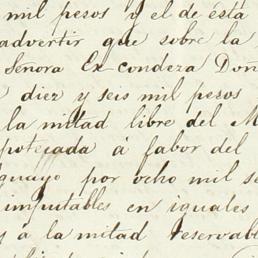 mil pesos y el de ésta
advertir que sobre la
Señora Ex-condeza Don
diez y seis mil pesos
la mitad libre del M
potecada á fabor del
guayo por ocho mil se
imputables en iguales
y á la mitad reservable